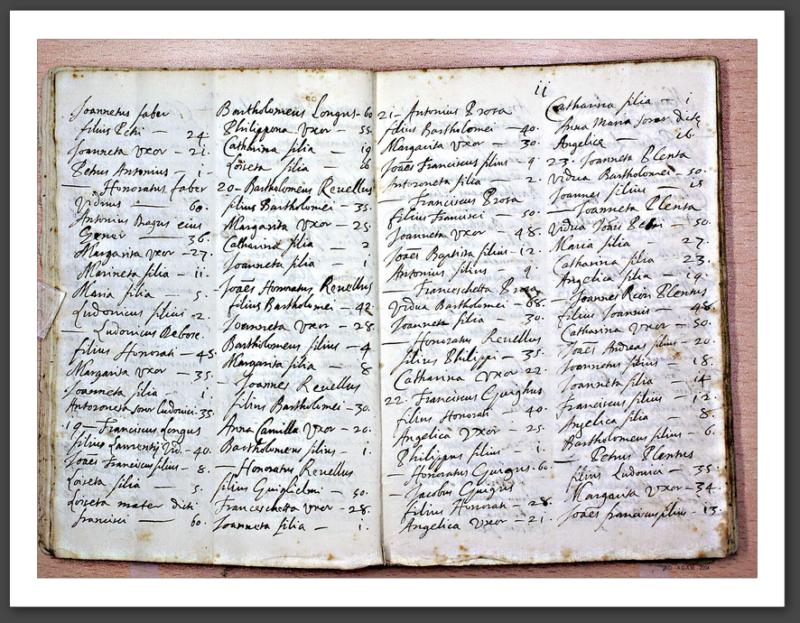 Joannetus faber
filius Petri — 24
Joanneta Vxor — 21.
Petrus Antonius — 1.
— Honoratus faber
Viduus — 60.
Antonius Bagus eius
Gener — 36.
Margarita Vxor — 27.
Marineta filia — 11.
Maria filia — 5.
Ludovicus filius — 2.
— Ludovicus Debose
filius Honorati — 45.
Margarita Vxor — 35.
Joanneta filia — 1.
Antoroneta soror Ludovici — 35.
19 — Franciscus Longus
filius Laurentij Vid. — 40.
Joães Franciscus filius — 8.
Loiseta filia — 5.
Loiseta mater dicti
francisci — 60.
Bartholomeus Longus — 60
Philippona Vxor — 55.
Catharina filia — 19
Loiseta filia — 16
20 — Bartholomeus Revellus
filius Bartholomei — 35.
Margarita Vxor — 25.
Catharina filia — 2
Joanneta filia — 1
Joães Honoratus Revellus
filius Bartholomei — 42.
Joanneta Vxor — 28
Bartholomeus filius — 4
Margarita filia — 8
— Joannes Revellus
filius Bartholomei — 30.
Anna Camilla Vxor — 20.
Bartholomeus filius — 1.
— Honoratus Revellus
filius Guiglielmi — 50.
Franceschetta Vxor — 28.
Joanneta filia — 1.
ii
21 — Antonius Prosa
filius Bartholomei — 40.
Margarita Vxor — 30.
Joães Franciscus filius — 9
Antoroneta filia — 2.
— Franciscus Prosa
filius Francisci — 50.
Joanneta Vxor — 48.
Joães Baptista filius — 12
Antonius filius — 9
— Franceschetta Prosa
Vidua Bartholomei — 88.
Joanneta filia — 30.
— Honoratus Revellus
filius Philippi — 35.
Catharina Vxor 22.
22. Franciscus Guighus
filius Honorati — 40.
Angelica Vxor — 25.
Philippus filius — 1.
— Honoratus Guigus — 60.
— Jacobus Guigus
filius Honorati — 28.
Angelica Vxor — 21.
Catharina filia — 1
Anna Maria soror dictę
Angelicę — 16.
23. Joanneta Plenta
vidua Bartholomei — 50.
Joannes filius — 15
— Joanneta Plenta
vidua Joãis Petri — 50.
Maria filia — 27.
Catharina filia — 23.
Angelica filia — 19.
— Joannes Plentus
filius Joannis — 48.
Catharina Vxor — 50.
Joães Andreas filius — 20.
Joannetus filius — 18.
Joanneta filia — 14
Franciscus filius — 12.
Angelica filia — 8.
Bartholomeus filius — 6.
— Petrus Plentus
filius Ludovici — 35.
Margarita Vxor — 34.
Joães franciscus filius — 13.